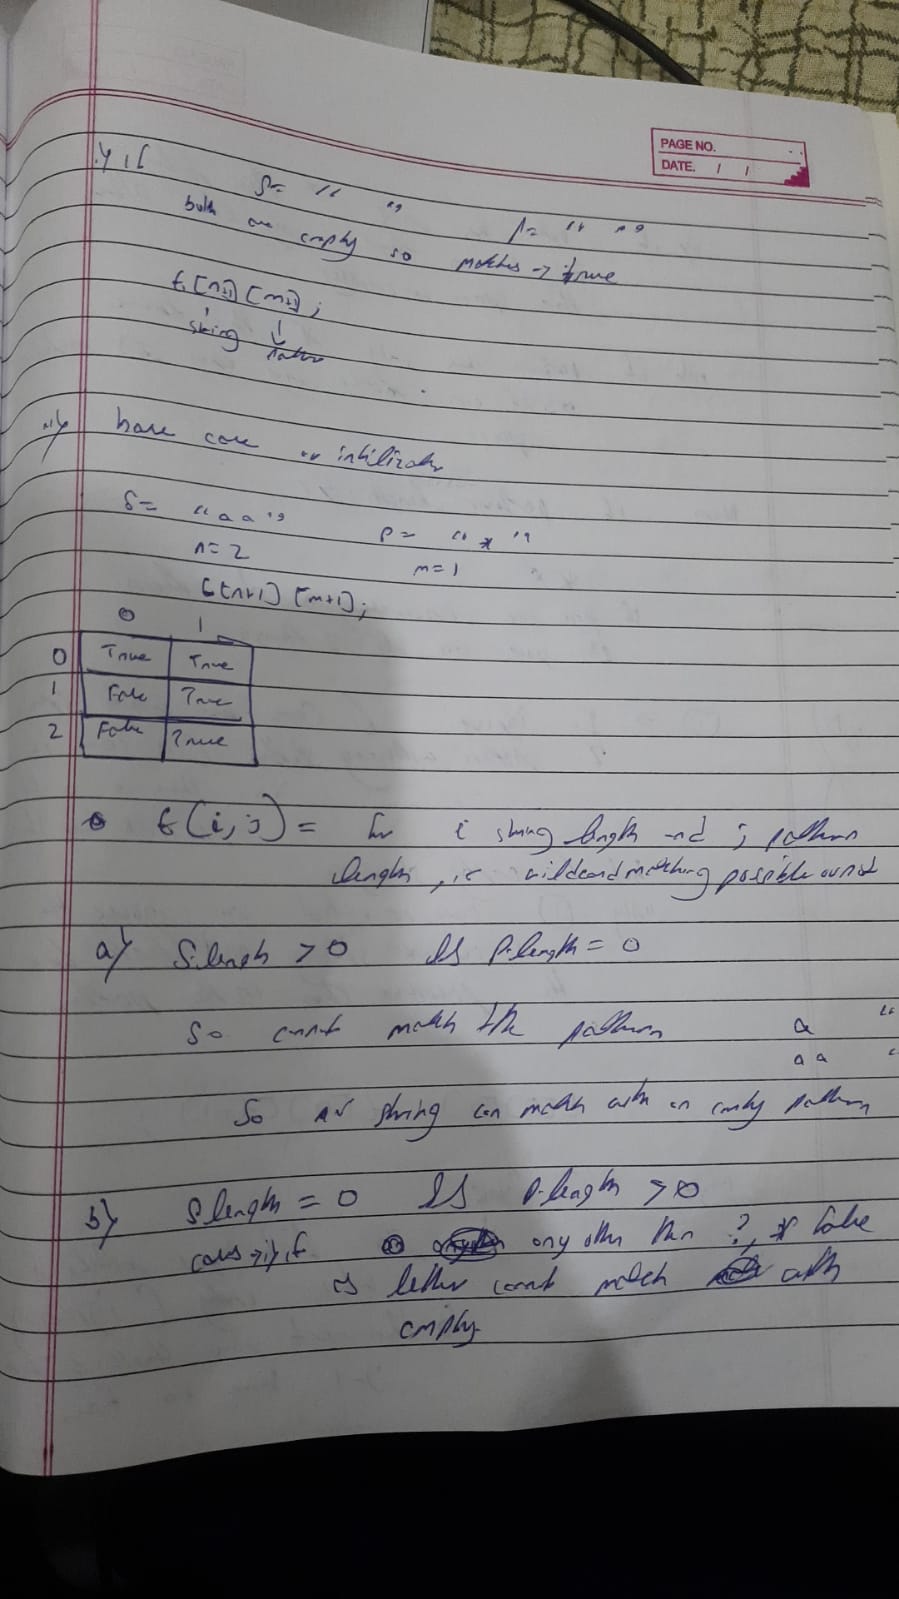 PAGE NO.
DATE. / /
if
S= " "
P= " "
both are empty so matches → true
t[n+1][m+1];
string
base case
S= "aa"
P= "*"
n=2
m=1
t[n+1][m+1];
0 1
0 True True
1 False True
2 False True
t(i,j) = for i string length and j pattern
length, is wildcard matching possible or not
a) S.length > 0 && P.length = 0
So cannot match the pattern a "
aa "
So no string can match with an empty pattern
b) S.length = 0 && P.length > 0
cases → i) if any other then ?, * false
as letter cannot match with
empty